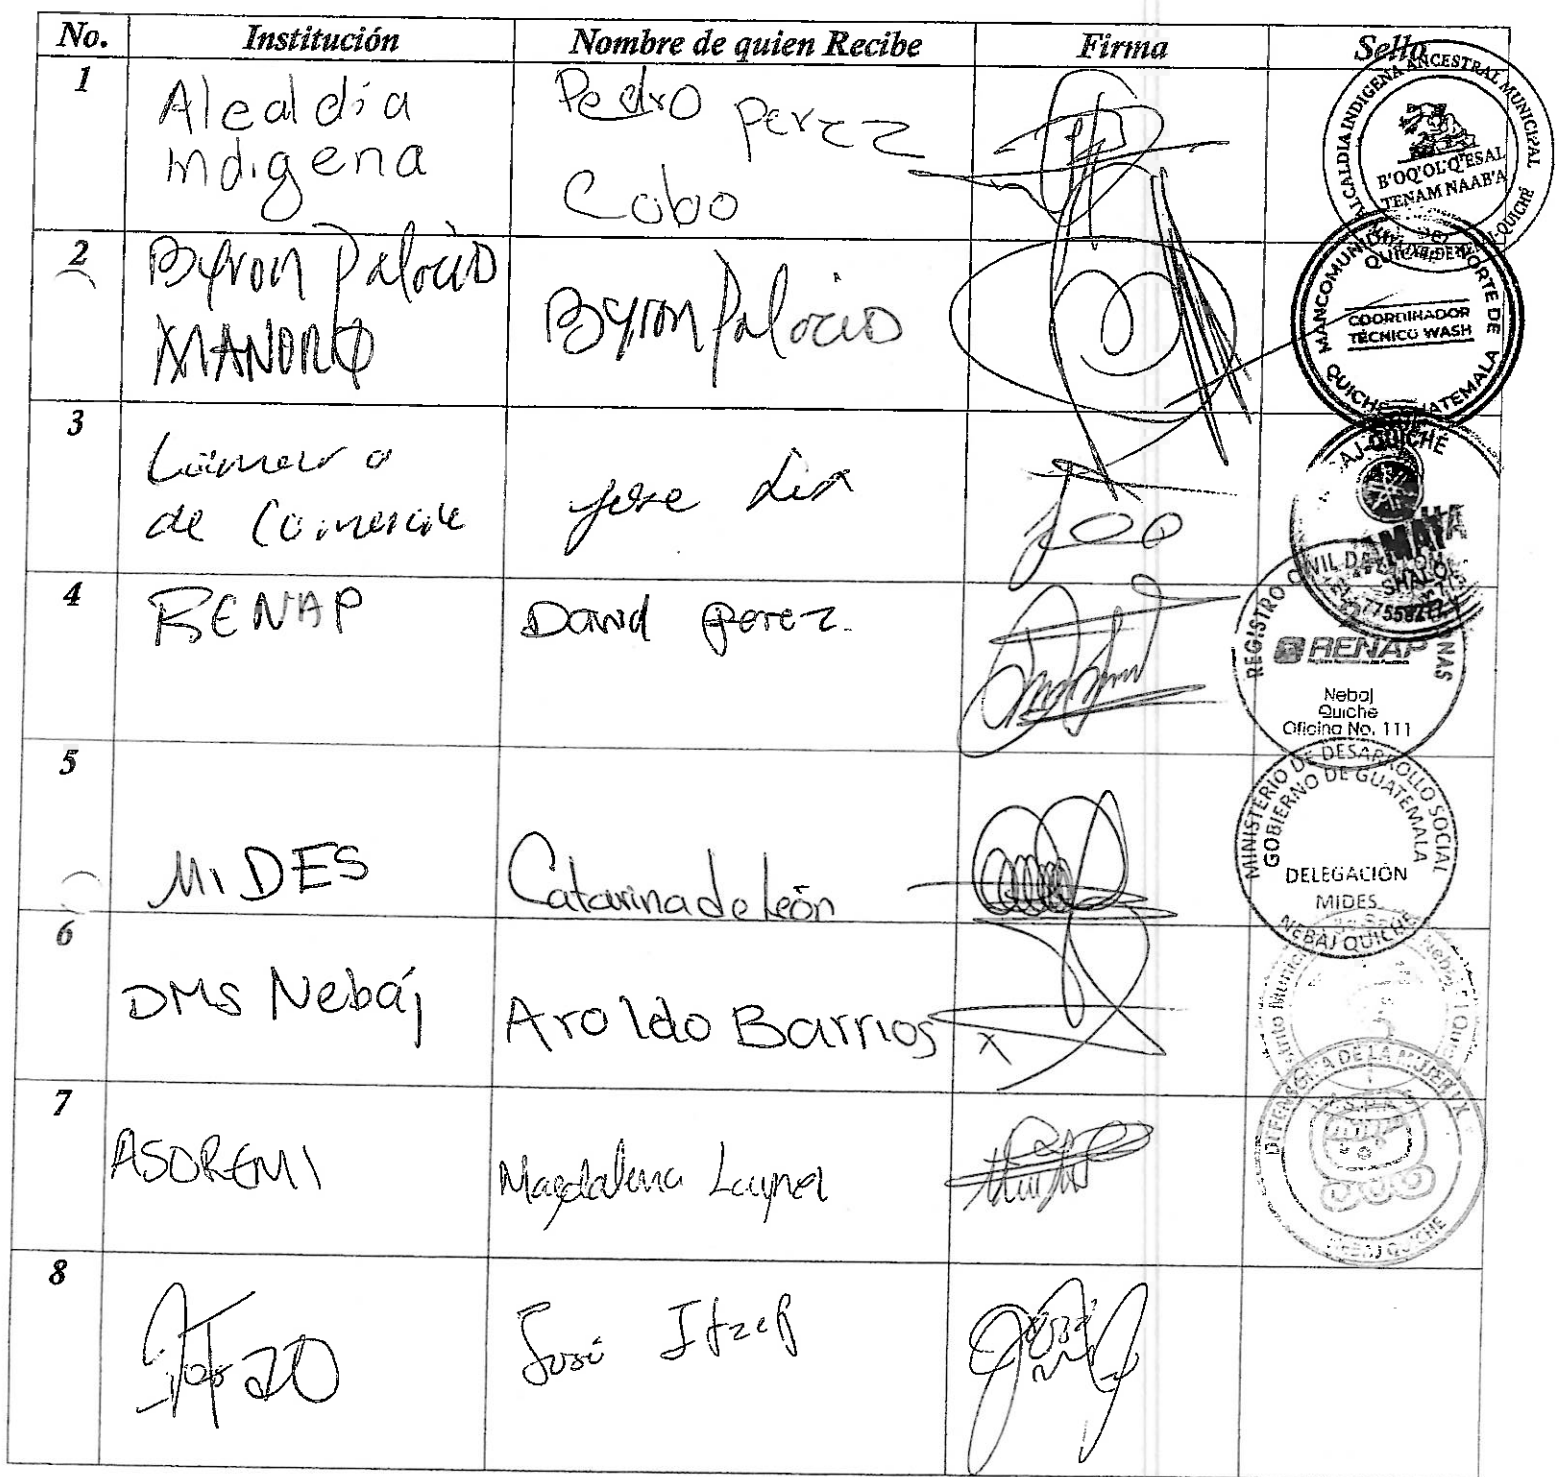 No. Institución Nombre de quien Recibe Firma Sello
1
Alcaldia
indigena
Pedro Perez
Cobo
ALCALDIA INDIGENA ANCESTRAL MUNICIPAL
B'OQ'OL Q'ESAL
TENAM NAAB'A
2
Byron Palacios
MANORQ
Byron Palacios
MANCOMUNIDAD NORTE DE QUICHE GUATEMALA
COORDINADOR
TÉCNICO WASH
3
Cámara
de Comercio
Jose
MAYA
SHALOM
4
RENAP
David Perez.
REGISTRO CIVIL
RENAP
Nebaj
Quiche
Oficina No. 111
5
MIDES
Catarina de León
MINISTERIO DE DESARROLLO SOCIAL
GOBIERNO DE GUATEMALA
DELEGACIÓN
MIDES
NEBAJ QUICHE
6
DMS Nebáj
Aroldo Barrios
x
7
ASOREMI
Magdalena Laynez
DEFENSORIA DE LA MUJER IX
NEBAJ QUICHE
8
José Itzep